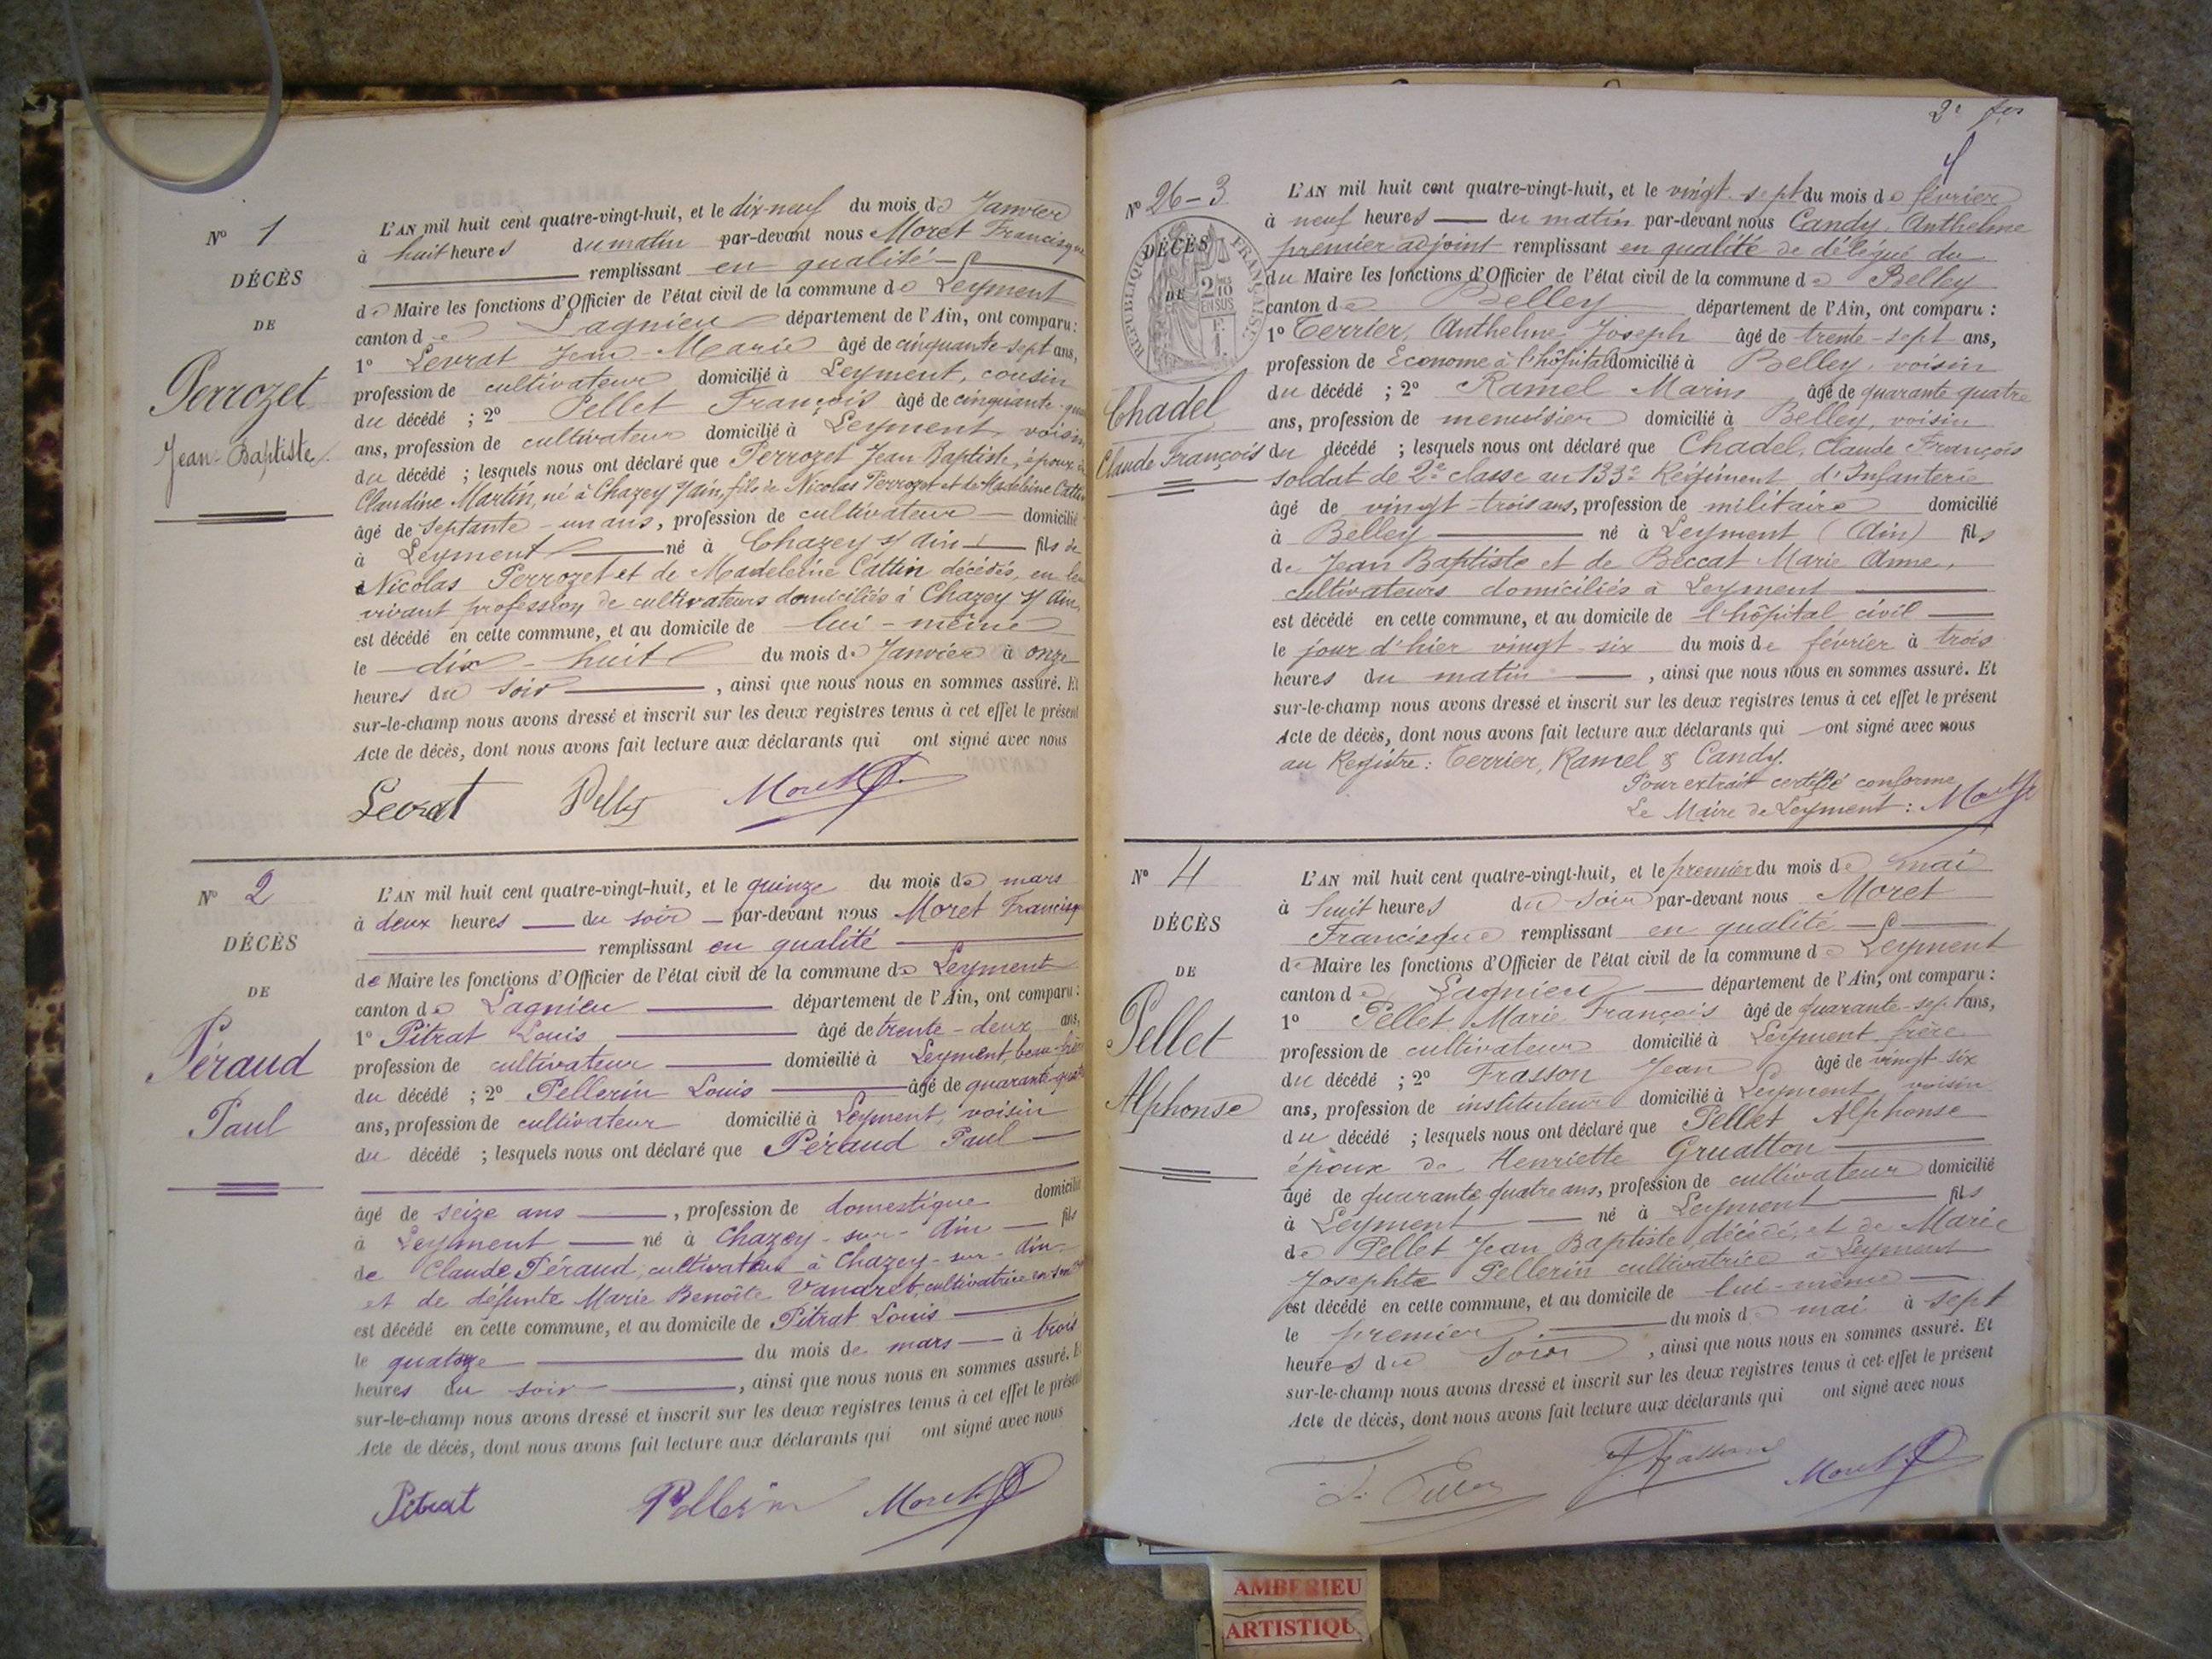 N° 1
DÉCÈS
DE
Perrozet
Jean-Baptiste
L'AN mil huit cent quatre-vingt-huit, et le dix-neuf du mois de Janvier
à huit heures du matin par-devant nous Moret Francisque
remplissant en qualité
de Maire les fonctions d'Officier de l'état civil de la commune de Leyment
canton de Lagnieu département de l'Ain, ont comparu :
1° Levrat Jean-Marie âgé de cinquante-sept ans,
profession de cultivateur domicilié à Leyment, cousin
du décédé ; 2° Pellet François âgé de cinquante
ans, profession de cultivateur domicilié à Leyment voisin
du décédé ; lesquels nous ont déclaré que Perrozet Jean Baptiste, époux de
Claudine Martin, né à Chazey s/ain, fils de Nicolas Perrozet et de Madeleine Cattin
âgé de septante-un ans, profession de cultivateur domicilié
à Leyment né à Chazey s/ ain fils de
Nicolas Perrozet et de Madeleine Cattin décédés, en leur
vivant profession de cultivateurs domiciliés à Chazey s/ ain,
est décédé en cette commune, et au domicile de lui-même
le dix-huit du mois de Janvier à onze
heures du soir, ainsi que nous nous en sommes assuré. Et
sur-le-champ nous avons dressé et inscrit sur les deux registres tenus à cet effet le présent
Acte de décès, dont nous avons fait lecture aux déclarants qui ont signé avec nous
Levrat Pellet Moret F.
N° 2
DÉCÈS
DE
Péraud
Paul
L'AN mil huit cent quatre-vingt-huit, et le quinze du mois de mars
à deux heures du soir par-devant nous Moret Francisque
remplissant en qualité
de Maire les fonctions d'Officier de l'état civil de la commune de Leyment
canton de Lagnieu département de l'Ain, ont comparu :
1° Pitrat Louis âgé de trente-deux ans,
profession de cultivateur domicilié à Leyment, beau-frère
du décédé ; 2° Pellerin Louis âgé de quarante-quatre
ans, profession de cultivateur domicilié à Leyment, voisin
du décédé ; lesquels nous ont déclaré que Péraud Paul
âgé de seize ans, profession de domestique domicilié
à Leyment né à Chazey-sur-Ain fils
de Claude Péraud, cultivateur à Chazey-sur-Ain
et de défunte Marie Benoîte Vandret, cultivatrice
est décédé en cette commune, et au domicile de Pitrat Louis
le quatorze du mois de mars à trois
heures du soir, ainsi que nous nous en sommes assuré. Et
sur-le-champ nous avons dressé et inscrit sur les deux registres tenus à cet effet le présent
Acte de décès, dont nous avons fait lecture aux déclarants qui ont signé avec nous
Pitrat Pellerin Moret F.
N° 26-3
DÉCÈS
DE
RÉPUBLIQUE FRANÇAISE
2/10 EN SUS
Chadel
Claude François
L'AN mil huit cent quatre-vingt-huit, et le vingt-sept du mois de février
à neuf heures du matin par-devant nous Candy, Anthelme
premier adjoint remplissant en qualité de délégué du
du Maire les fonctions d'Officier de l'état civil de la commune de Belley
canton de Belley département de l'Ain, ont comparu :
1° Terrier, Anthelme Joseph âgé de trente-sept ans,
profession de Econome à l'hôpital domicilié à Belley, voisin
du décédé ; 2° Ramel Marin âgé de quarante quatre
ans, profession de menuisier domicilié à Belley, voisin
du décédé ; lesquels nous ont déclaré que Chadel, Claude François
soldat de 2e classe au 133e Régiment d'Infanterie
âgé de vingt-trois ans, profession de militaire domicilié
à Belley né à Leyment (Ain) fils
de Jean Baptiste et de Béccat Marie Anne,
cultivateurs domiciliés à Leyment
est décédé en cette commune, et au domicile de l'hôpital civil
le jour d'hier vingt-six du mois de février à trois
heures du matin, ainsi que nous nous en sommes assuré. Et
sur-le-champ nous avons dressé et inscrit sur les deux registres tenus à cet effet le présent
Acte de décès, dont nous avons fait lecture aux déclarants qui ont signé avec nous
au Registre : Terrier, Ramel & Candy.
Pour extrait certifié conforme
Le Maire de Leyment : Moret F
N° 4
DÉCÈS
DE
Pellet
Alphonse
L'AN mil huit cent quatre-vingt-huit, et le premier du mois de mai
à huit heures du soir par-devant nous Moret
Francisque remplissant en qualité
de Maire les fonctions d'Officier de l'état civil de la commune de Leyment
canton de Lagnieu département de l'Ain, ont comparu :
1° Pellet Marie François âgé de quarante-sept ans,
profession de cultivateur domicilié à Leyment frère
du décédé ; 2° Frasson Jean âgé de vingt-six
ans, profession de instituteur domicilié à Leyment voisin
du décédé ; lesquels nous ont déclaré que Pellet Alphonse
époux de Henriette Gruatton
âgé de quarante quatre ans, profession de cultivateur domicilié
à Leyment né à Leyment fils
de Pellet Jean Baptiste décédé, et de Marie
Josephte Pellerin cultivatrice à Leyment
est décédé en cette commune, et au domicile de lui-même
le premier du mois de mai à sept
heures du soir, ainsi que nous nous en sommes assuré. Et
sur-le-champ nous avons dressé et inscrit sur les deux registres tenus à cet effet le présent
Acte de décès, dont nous avons fait lecture aux déclarants qui ont signé avec nous
Frasson Moret F.
AMBERIEU
ARTISTIQU